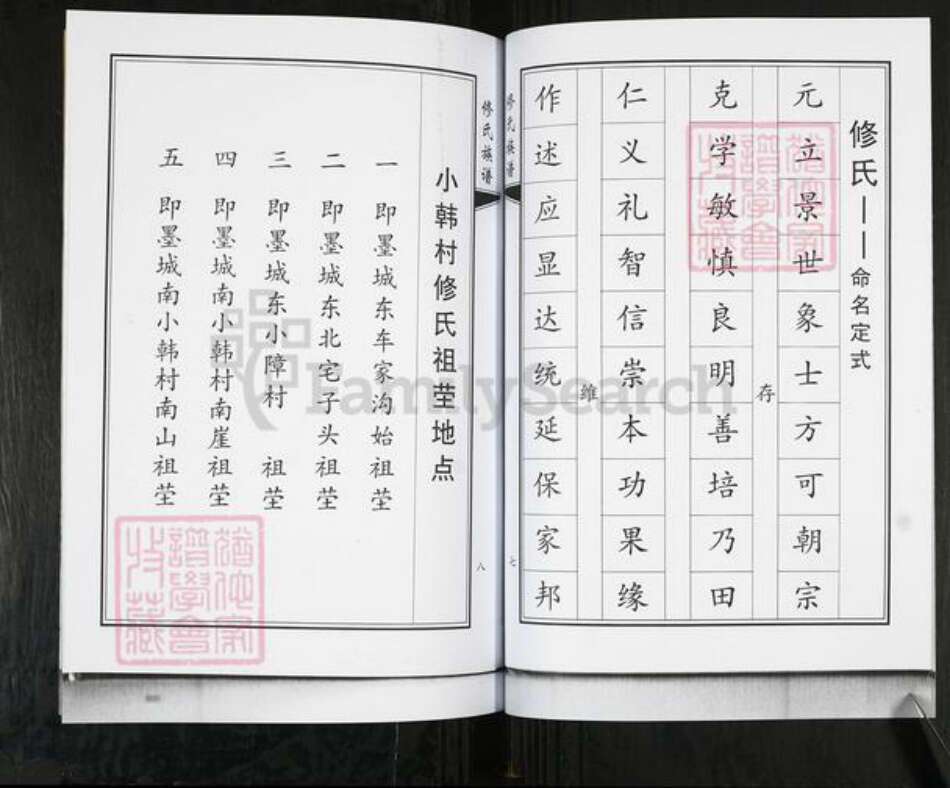 修氏——命名定式
元立景世象士方可朝宗
存
克学敏慎良明善培乃田
仁义礼智信崇本功果缘
维
作述应显达统延保家邦
修氏族谱
七
修氏族谱
八
小韩村修氏祖茔地点
一 即墨城东车家沟始祖茔
二 即墨城东北宅子头祖茔
三 即墨城东小障村 祖茔
四 即墨城南小韩村南崖祖茔
五 即墨城南小韩村南山祖茔
FamilySearch